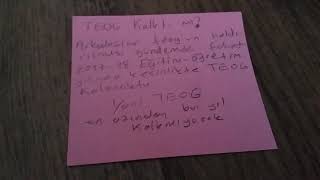 TEOG Kalktı mı?
Arkadaşlar teog'un kaldı
rılması gündemde fakat
2017-18 Eğitim-öğretim
yılında kesinlikle TEOG
kalacaktır
Yani TEOG
en azından bu yıl
kalkmayacak